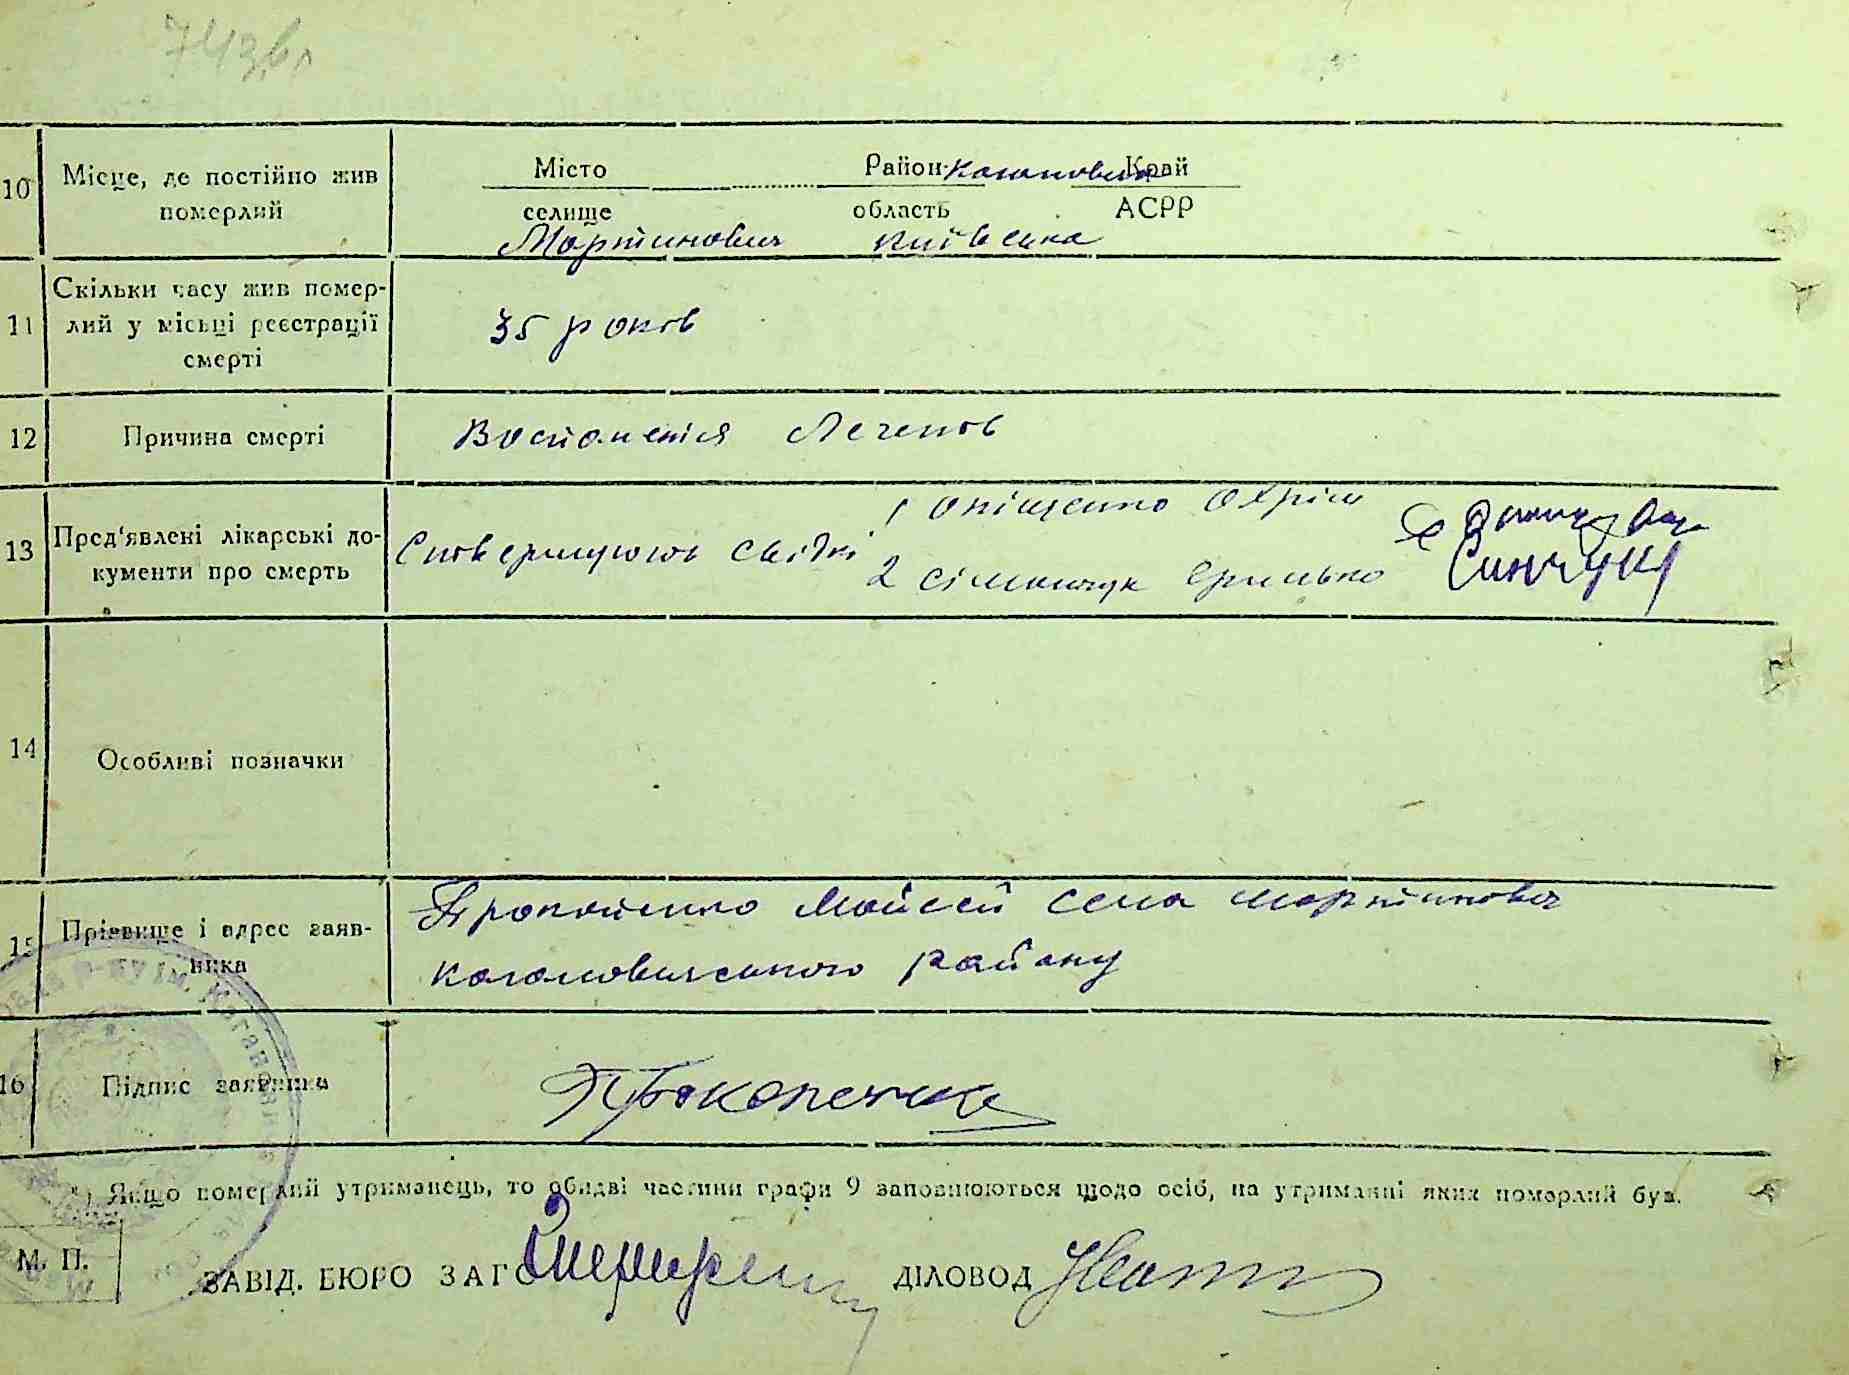 743 вл
10 Місце, де постійно жив померлий
Місто Район Каганович Край
селище область АСРР
Мартинович Київська
11 Скільки часу жив помер-
лий у місьці реєстрації
смерті
35 років
12 Причина смерті
Воспаленія Легенів
13 Пред'явлені лікарські до-
кументи про смерть
свідкі
1 Оніщенко Охрім
2 Сіманчук
14 Особливі позначки
15 Прізвище і адрес заяв-
ника
Прокопенко Мойсей села Мартинович
Кагановичського району
16 Підпис заявника
Прокопенко
*) Якщо померлий утриманець, то обидві частини графи 9 заповнюються щодо осіб, на утриманні яких померлий був.
М. П.
ЗАВІД. БЮРО ЗАГС
ДІЛОВОД